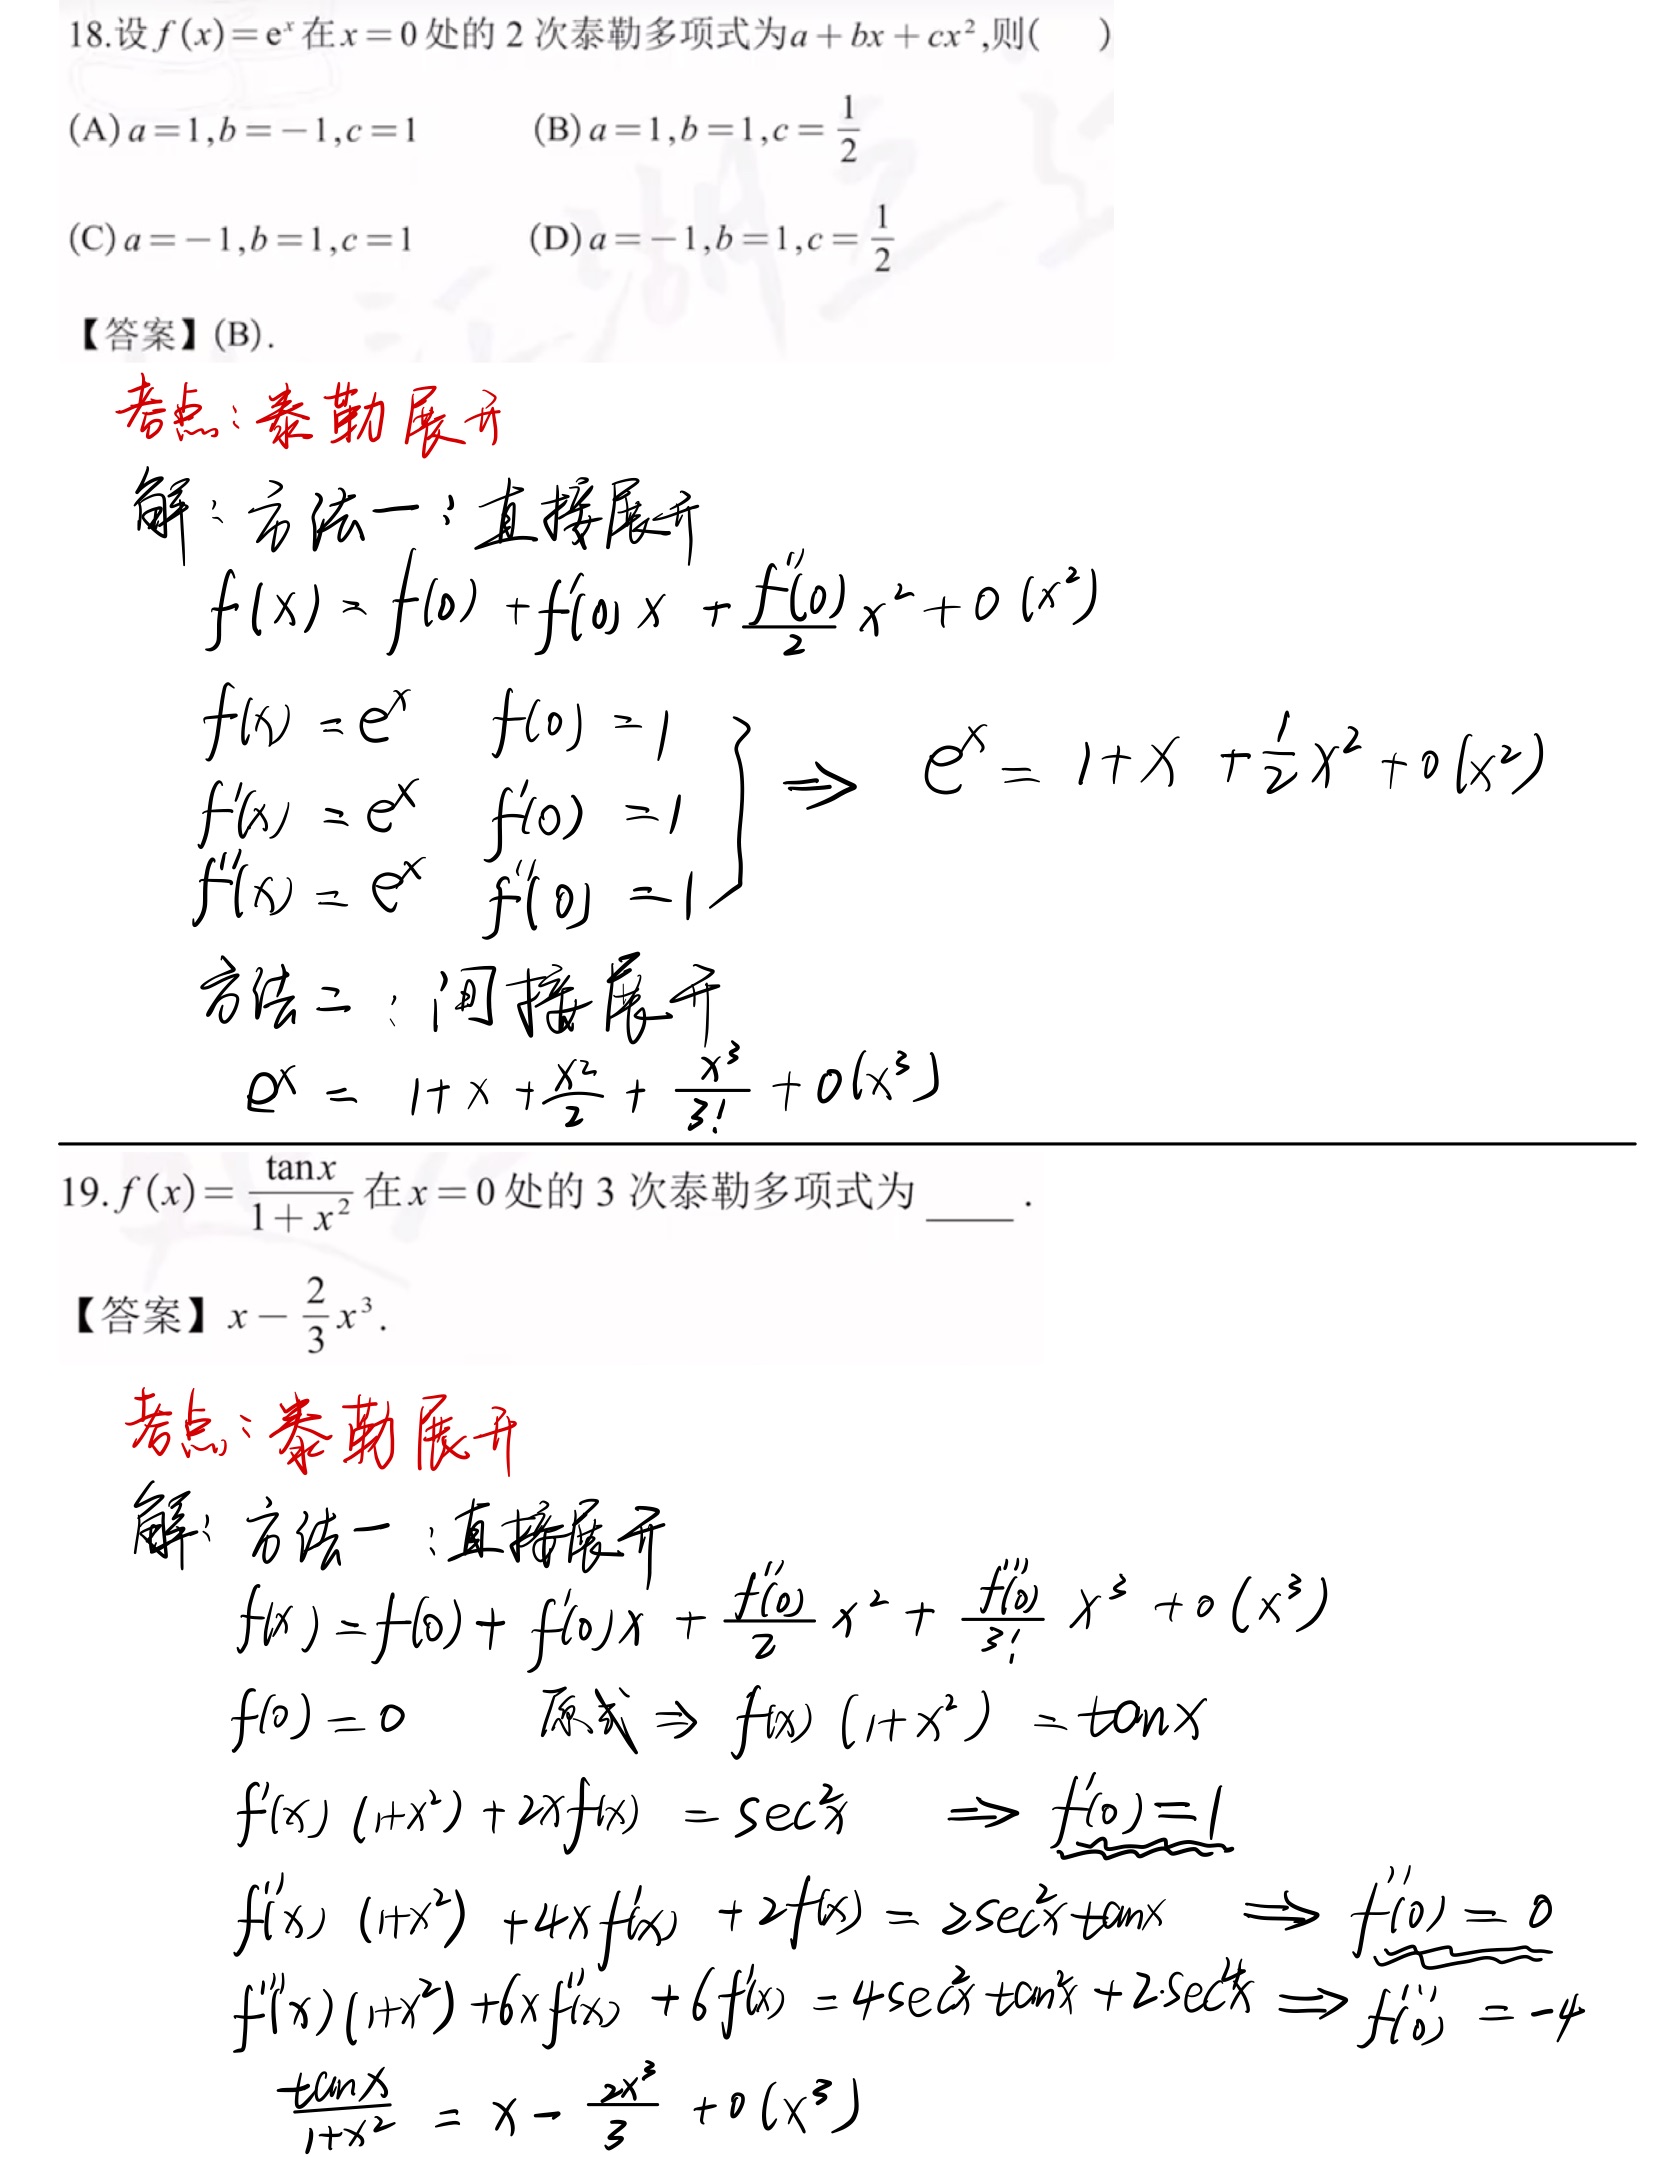 18.设 f(x)=eˣ 在 x=0 处的 2 次泰勒多项式为 a+bx+cx²,则(　　)
(A) a=1,b=-1,c=1　　(B) a=1,b=1,c=1/2
(C) a=-1,b=1,c=1　　(D) a=-1,b=1,c=1/2
【答案】(B).
考点:泰勒展开
解:方法一:直接展开
f(x)=f(0)+f'(0)x+f''(0)/2 x²+o(x²)
f(x)=eˣ　f(0)=1
f'(x)=eˣ　f'(0)=1　⇒　eˣ=1+x+1/2 x²+o(x²)
f''(x)=eˣ　f''(0)=1
方法二:间接展开
eˣ=1+x+x²/2+x³/3!+o(x³)
19.f(x)=tanx/(1+x²) 在 x=0 处的 3 次泰勒多项式为____.
【答案】x-2/3 x³.
考点:泰勒展开
解:方法一:直接展开
f(x)=f(0)+f'(0)x+f''(0)/2 x²+f'''(0)/3! x³+o(x³)
f(0)=0　原式⇒f(x)(1+x²)=tanx
f'(x)(1+x²)+2xf(x)=sec²x　⇒　f'(0)=1
f''(x)(1+x²)+4xf'(x)+2f(x)=2sec²xtanx　⇒　f''(0)=0
f'''(x)(1+x²)+6xf''(x)+6f'(x)=4sec²xtan²x+2·sec⁴x⇒f'''(0)=-4
tanx/(1+x²)=x-2x³/3+o(x³)